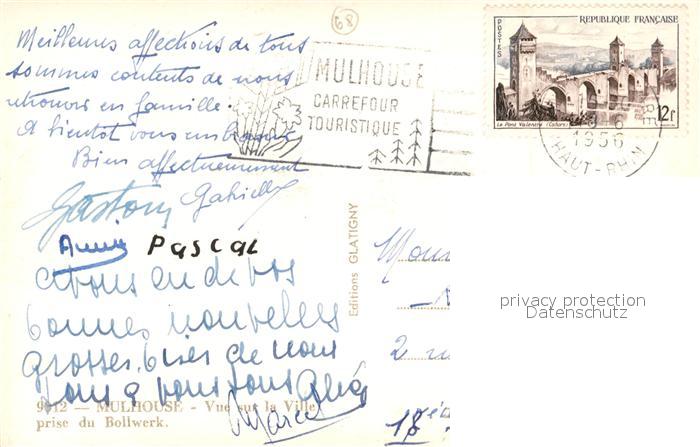 68
Meilleures affections de tous
sommes contents de nous
retrouver en famille.
A bientot vous
Bien affectueusement
Gaston Gabrielle
Annie PASCAL
avons eu de vos
bonnes nouvelles
grosses bises de nous
tous a vous tous
Marcel
9612 — MULHOUSE - Vue sur la Ville
prise du Bollwerk.
MULHOUSE
CARREFOUR
TOURISTIQUE
REPUBLIQUE FRANÇAISE
POSTES
Le Pont Valentré (Cahors)
12f
1956
HAUT-RHIN
Editions GLATIGNY
2
18
privacy protection
Datenschutz